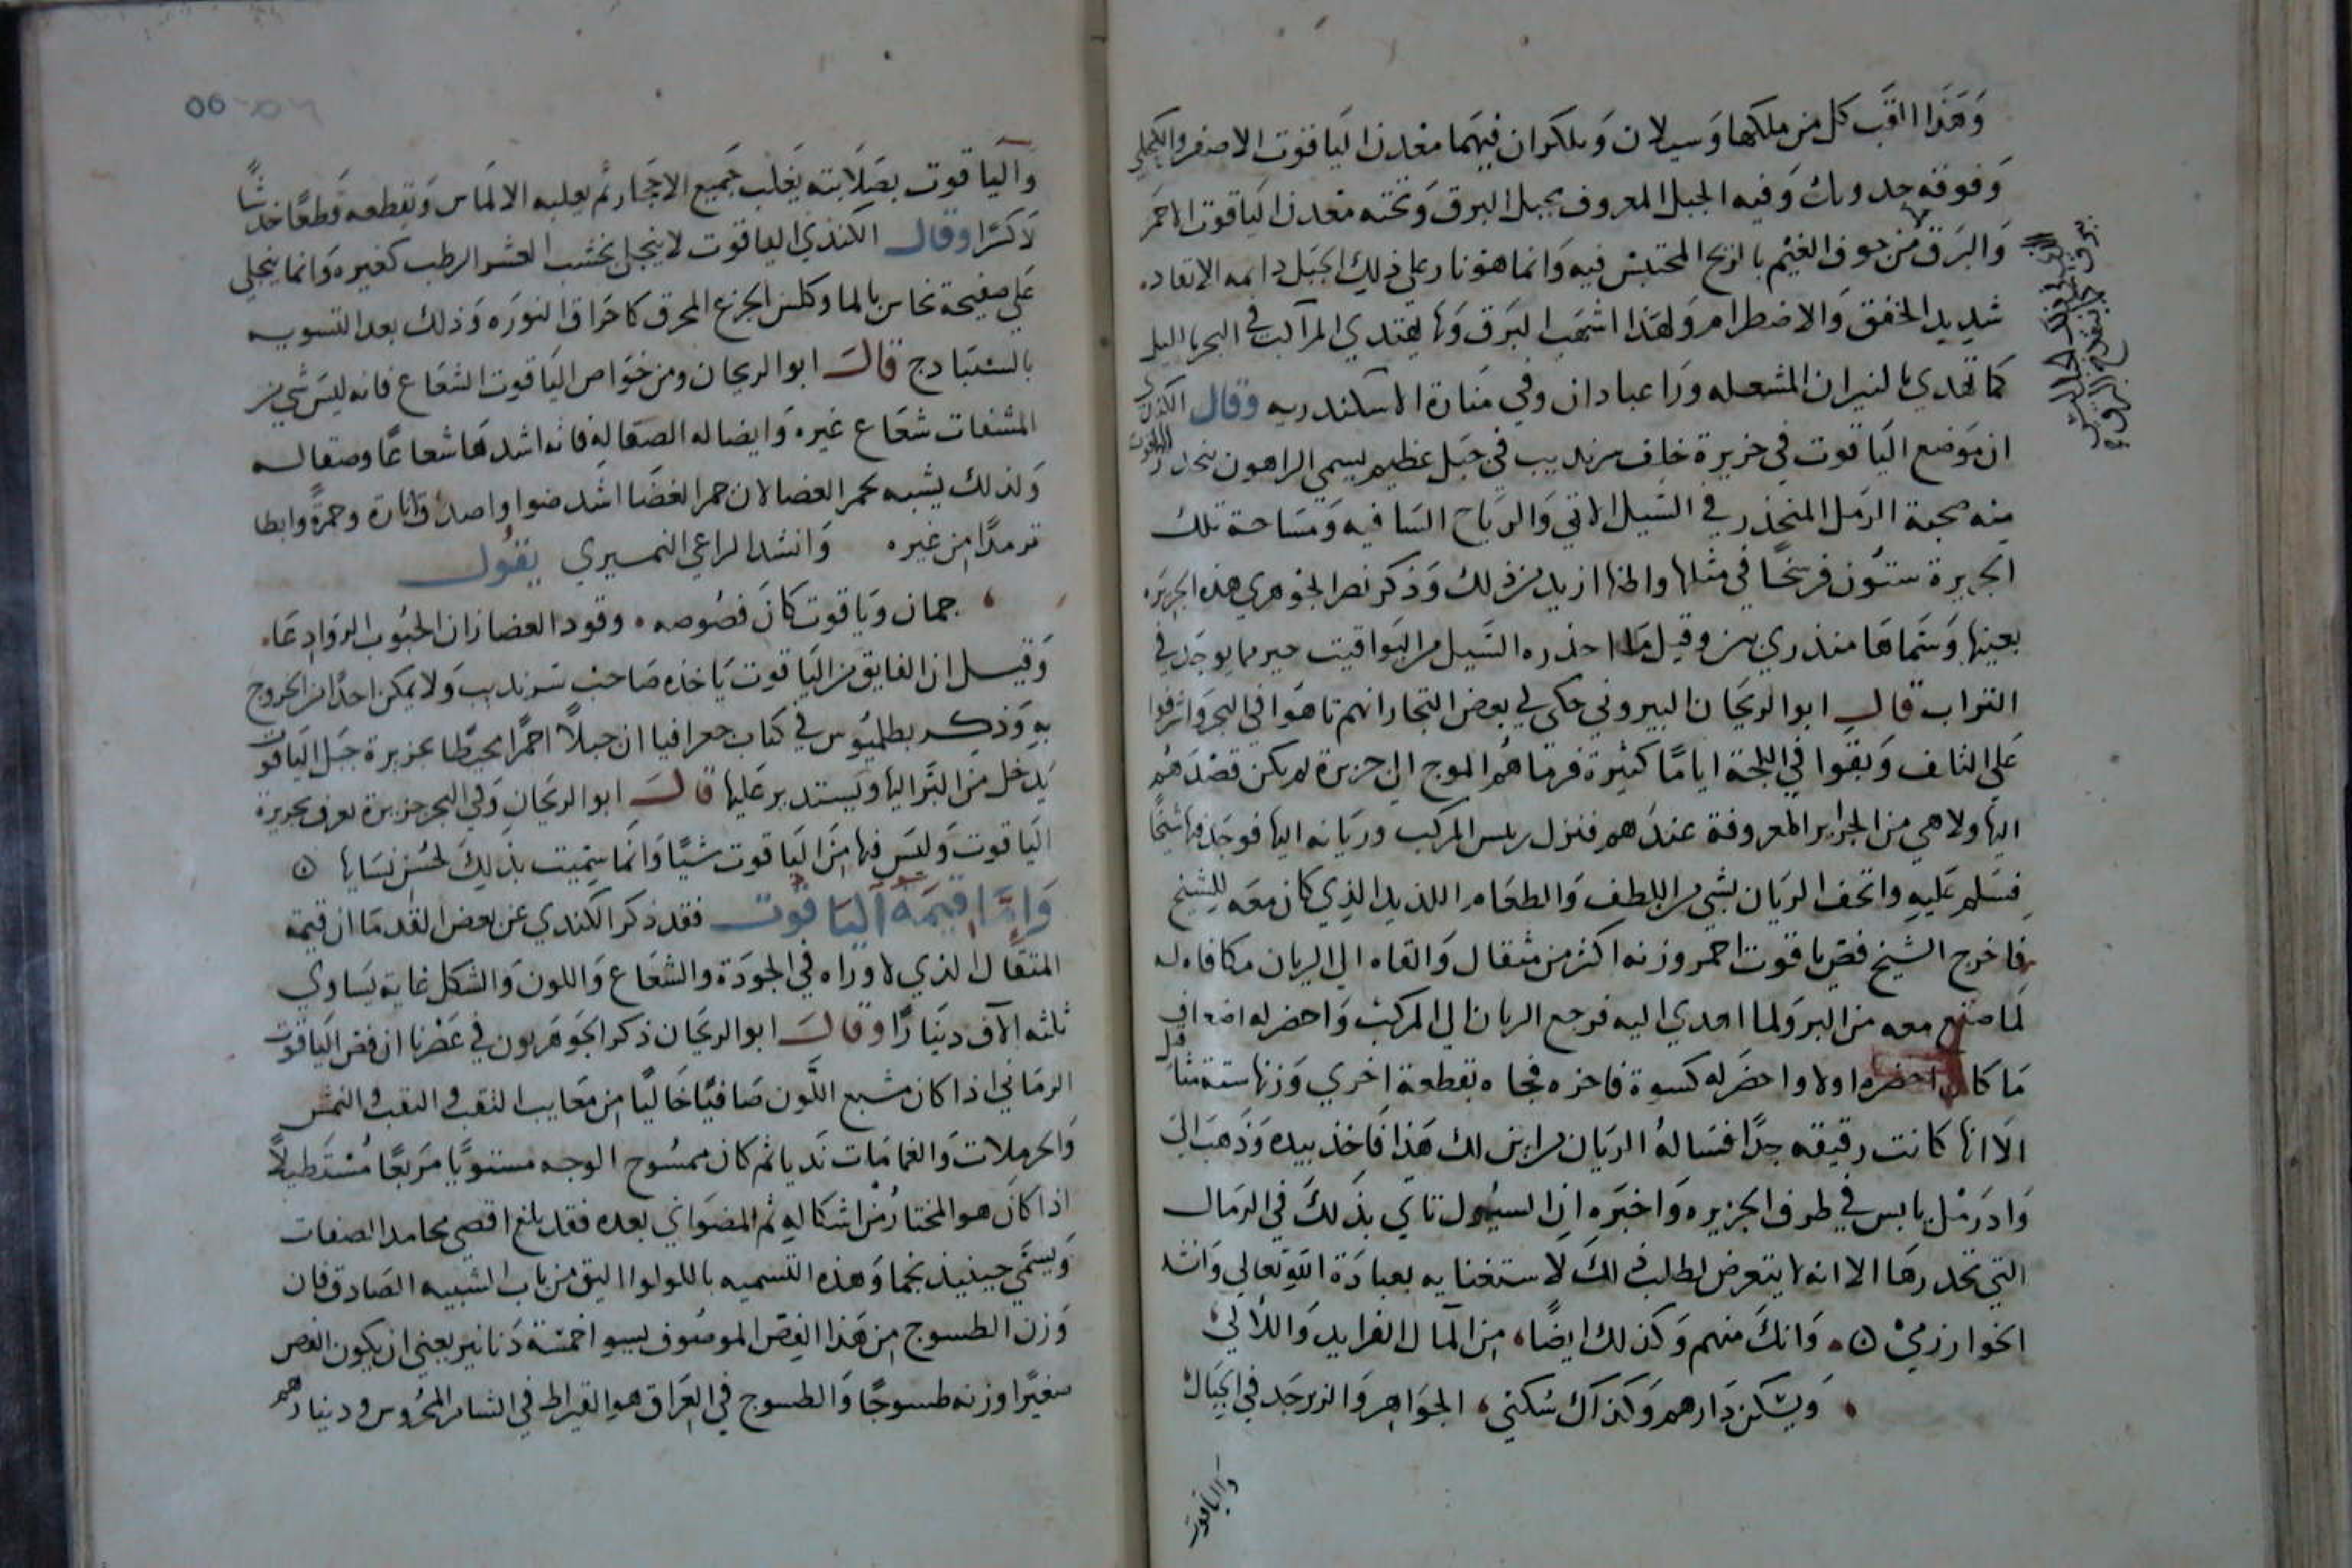 وَهَذَا القب كل من ملكها وَسيلان وَبلكران فيهَما معدن اليَاقوت الاصفر والكحلي
وَفوقه جد وبك وَفيه الجبل المعروف بجبل البرق وَتحته معدن اليَاقوت الاحمر
وَالبَرق من جوف الغيم بالريح المحتبس فيه وَانما هو نار على ذلك الجَبل دايمه الاتقاد
شديد الخفق والاضطرام وَلهذا اشهب البَرق وَبها يهتدي المراكب في البحر بالليل
كما تهدي بالنيران المشعله وَرا عبادان وفي منارة الاسكندريه وقال الكندي
ان مَوضع اليَاقوت في جزيرة خلف سرنديب في جَبل عظيم يسمي الراهون ينحدر الياقوت
منه صحبة الرمل المنحذر في السَيل الاتي وَالريَاح السَافيه وَمسَاحة تلك
الجزيرة ستون فرسخًا في مثلها واظنها ازيد من ذلك وَذكر نصر الجوهري هذه الجزيره
بعينها وَسَماهَا مندري بين وقيل مَا احذره السَيل من اليَواقيت خير مما يوجد في
التراب قال ابو الريحَان البيروني حكي لي بعض التجار انهم تاهَوا في البحر واشرفوا
عَلى التلف وَبقوا في اللجة ايامًا كثيرة فرماهم الموج الي جزيرة لم يكن قصدهم
اليها ولا هي من الجزاير المعروفة عندَهم فنزل ريس المركب وربَانه اليها فوجد فيها شيخًا
فسَلم عَليهِ واتحف الربَان بشي من اللطف وَالطعَام اللذيد الذي كان معَه للشيخ
فاخرج الشيخ فص ياقوت احمر وزنه اكثر من مثقال وَالقاه الي الربان مكافاه له
لما صنع معه من البر وَلما اهدي اليه فرجع الربان الي المركب وَاحضر له اضعاف
مَا كان احضره اولا واحضَر له كسوة فاخره فجاه بقطعة اخري وَزنها ستة مثاقيل
الَا انها كانت رقيقه جدًّا فسَاله الربَان من اين لك هَذا فَاخذ بيده وَذَهبَ الي
وَاد رَمل يابس في طرف الجزيره وَاخبَره ان السيُول تاتي بذَلك في الرمَال
التي تحدرهَا الا انه لا يتعرض لطلب ذلكَ لاستغنايه بعبادَة الله تعالي وَانشد
الخوارزمي ۞ وَانكَ منهم وَكذلك ايضًا من المَال الفرايد وَاللآلي
وَيسكن دَارهم وَكذاك سُكني الجوَاهر وَالزبرجَد في الجبَال
والياقوت
واليَاقوت بصَلَابته يَغلب جَميع الاحجَار ثم يغلبه الالمَاس وَيقطعه قَطعًا خدشًا
لَا كسرًا وقال الكندي الياقوت لا ينجلي بخشب العشر الرطب كغيره وَانما ينجلي
عَلى صفيحة نحاس بالما وكلس الجزع المحرق كاحراق النورَه وَذلك بعد التسويه
بالسنبَادج قال ابو الريحان ومن خوَاص اليَاقوت الشعَاع فانه ليسَ شي من
المشفات شعَاع غيره وَايضا له الصقاله فانه اشدهَا شعاعًا وصقاله
وَلذلك يشبه بجمر الغضا لان جمر الغضَا اشد ضوا واصدق انارة وحمرةً وابطا
ترمدًا من غيره وَانشد الراعي النميري يقول
جمان وَيَاقوت كانَ فصُوصه وقود الغضا زان الجيُوب الروَادِعَا
وَقيل ان الفايق من اليَاقوت يَاخذه صَاحب سَرنديب وَلا يمكن احدًا من الخروج
بهِ وَذكر بطلميُوس في كتاب جعرافيا ان جبلًا احمرًا محيطا بجزيرة جبَل اليَاقوت
يَدخل من البَر اليها وَيستدير عَليها قال ابو الريحَان وَفي البحر جزيرة تعرف بجزيرة
اليَاقوت وَليسَ فيها من اليَاقوت شيًا وَانمَا سميت بذَلكَ لحسن نسَايها ۞
وَامَّا قيمَة اليَاقوت فقد ذكر الكندي عن بعض القدمَا ان قيمة
المثقَال الذي لا وراه في الجودَة والشعَاع وَاللون وَالشكل غايه يسَاوي
ثلثه الآف دينَارًا وقال ابو الريحَان ذكر الجوَهريون في عَصْرنا ان فص اليَاقوت
الرمَاني اذا كان مشبع اللَّون صَافيًا خَاليًا من معَايب الثقب والنقب والنمش
وَالحرملات وَالغمامَات نَديا ثم كان ممسُوح الوجه مستويًا مربعًا مُستَطيلًا
اذا كانَ هو المختارُ من اشكاله ثم المضوَاني بعده فقد بلغ اقصى محامد الصفات
وَيسمَّي حينيذ نجما وَهذه التسميه باللولوا اليق من باب التشبيه الصَادق فان
وَزن الطسوج مِن هَذا الفِصّ الموصُوف يسوا خمسَة دَنانير يعني ان يكون الفص
صغيرًا وزنه طسوجًا وَالطسوج في العِرَاق هو القيراط في الشام المحرُوس ودينارهم